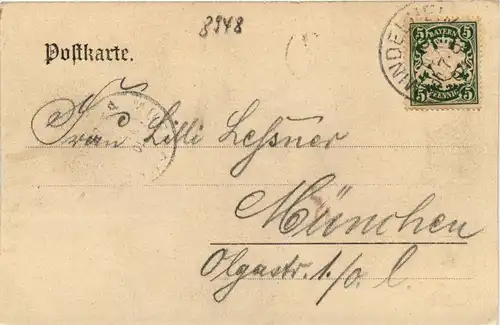 8948
Postkarte.
MINDELHEI
5 BAYERN 5
5 PFENNIG 5
Frau Lilli Lessner
München
Olgastr. 1./o. l.